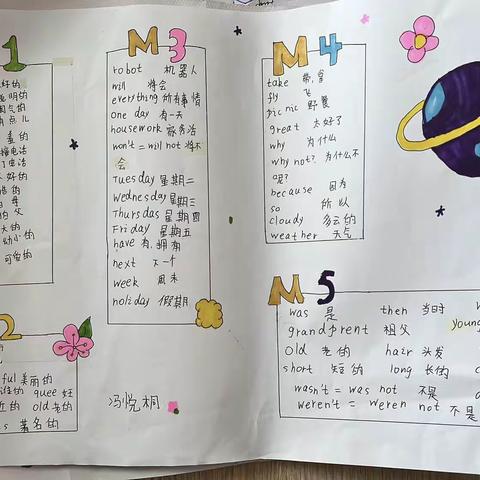 1
好的
明的
气的
点儿
羞的
电话
了电话
好的
的
母
的父
大的
幼小的
可爱的
2
ful 美丽的
quee
近的 old 老的
s 著名的
M3
robot 机器人
will 将会
everything 所有事情
one day 有一天
housework 家务活
won't = will not 将不
会
Tuesday 星期二
Wednesday 星期三
Thursdas 星期四
Friday 星期五
have 有,拥有
next 下一个
week 周末
holiday 假期
冯悦桐
M4
take 带,拿
fly 飞
picnic 野餐
great 太好了
why 为什么
why not? 为什么不
呢?
because 因为
so 所以
cloudy 多云的
weather 天气
M5
was 是 then 当时
grandprent 祖父 young
old 老的 hair 头发
short 短的 long 长的
wasn't = was not 不是
weren't = weren not 不是